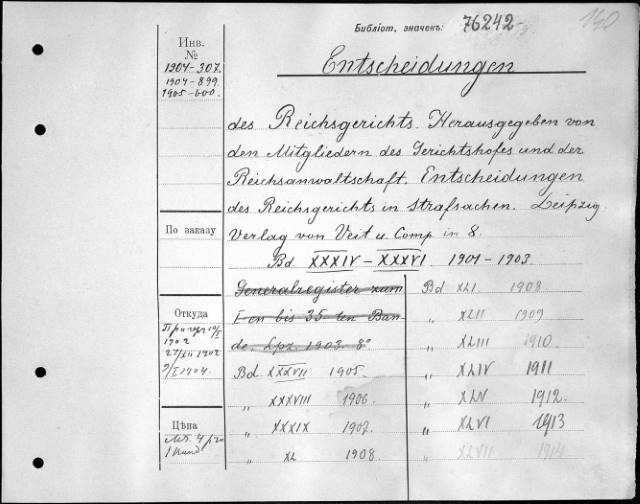 Библіот. значекъ: 76242-
140
Инв.
№
1904-307.
1904-899.
1905-600.
Entscheidungen
des Reichsgerichts. Herausgegeben von
den Mitgliedern des Gerichtshofes und der
Reichsanwaltschaft. Entscheidungen
des Reichsgerichts in Strafsachen. Leipzig
Verlag von Veit u. Comp in 8.
Bd XXXIV – XXXVI 1901 - 1903.
По заказу
Generalregister zum
1-en bis 35-ten Ban-
de. Lpz. 1903. 8°
Bd XXXVII 1905.
„ XXXVIII 1906.
„ XXXIX 1907.
„ XL 1908.
Bd XLI. 1908.
„ XLII 1909
„ XLIII 1910.
„ XLIV 1911
„ XLV 1912.
„ XLVI 1913
„ XLVII 1914
Откуда
1902
27/XII 1902
9/I 1904.
Цѣна